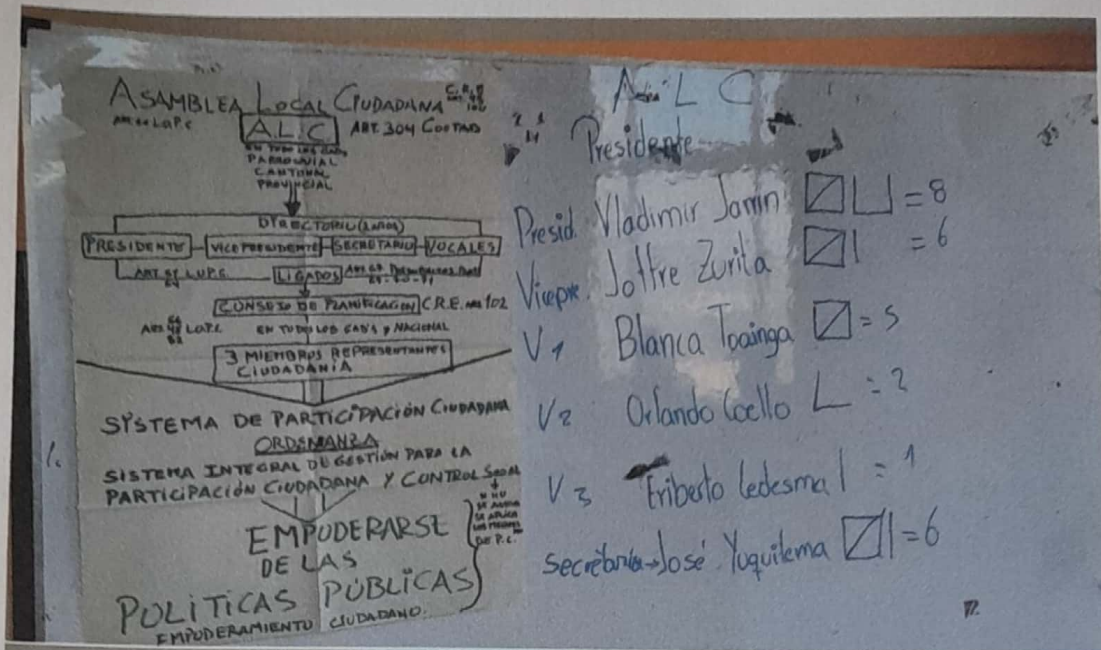 ASAMBLEA LOCAL CIUDADANA
A.L.C ART. 304 COOTAD
EN TODO LOS GADS
PARROQUIAL
CANTONAL
PROVINCIAL
DIRECTORIO
PRESIDENTE VICEPRESIDENTE SECRETARIO VOCALES
LIGADOS
CONSEJO DE PLANIFICACION C.R.E.
EN TODO LOS GADS y NACIONAL
3 MIEMBROS REPRESENTANTES
CIUDADANIA
SISTEMA DE PARTICIPACIÓN CIUDADANA
ORDENANZA
SISTEMA INTEGRAL DE GESTIÓN PARA LA
PARTICIPACIÓN CIUDADANA Y CONTROL SOCIAL
EMPODERARSE
DE LAS
POLÍTICAS PÚBLICAS
EMPODERAMIENTO CIUDADANO.
A L C
Presidente
Presid. Vladimir Jarrin = 8
Vicepre. Joffre Zurita = 6
V1 Blanca Toainga = 5
V2 Orlando Coello = 2
V3 Eriberto Ledesma = 1
Secretaria→José Yuquilema = 6